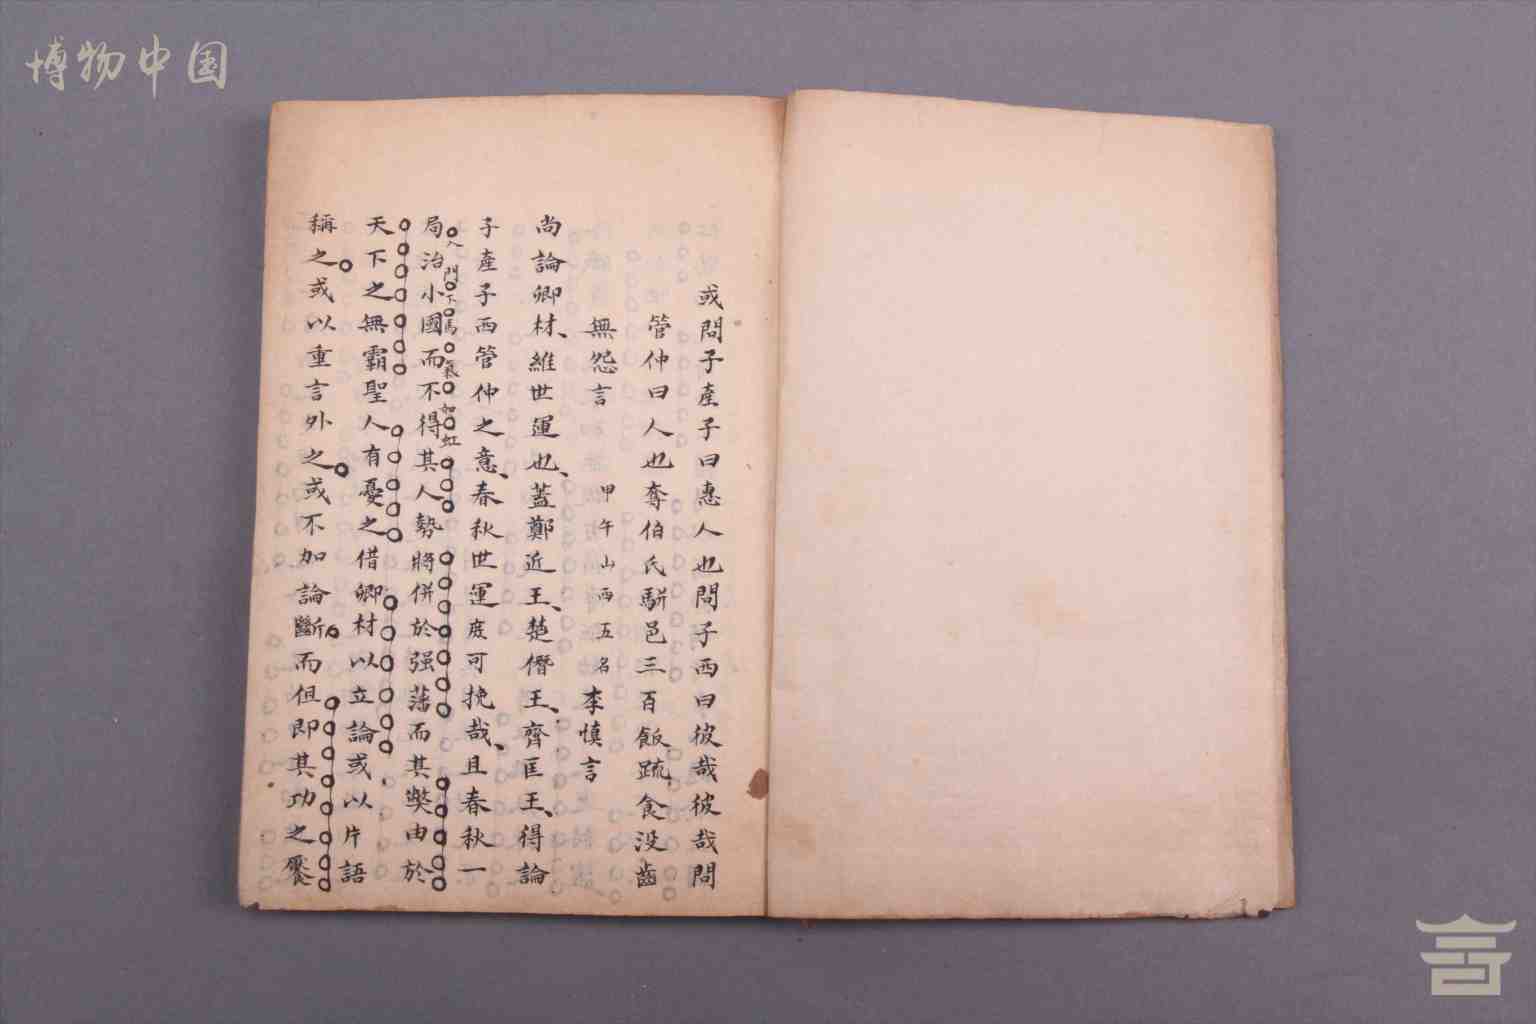 博物中国
或問子產子曰惠人也問子西曰彼哉彼哉問
管仲曰人也奪伯氏駢邑三百飯疏食没齒
無怨言 甲午山西五名 李慎言
尚論卿材維世運也蓋鄭近王楚僭王齊匡王得論
子產子西管仲之意春秋世運庶可挽哉且春秋一
入門下馬氣如虹
局治小國而不得其人勢將併於强藩而其獘由於
天下之無霸聖人有憂之借卿材以立論或以片語
稱之或以重言外之或不加論斷而但即其功之饜